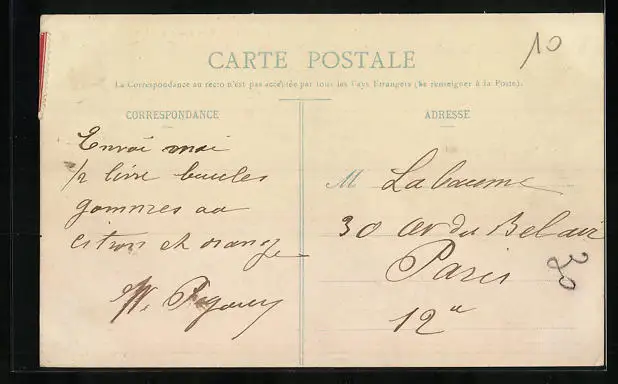 10
CARTE POSTALE
La Correspondance au recto n'est pas acceptée par tous les Pays Etrangers (Se renseigner à la Poste).
CORRESPONDANCE
Envoi moi
1/2 livre boules
gommes au
citron et orange
ADRESSE
M Labaume
30 av du Bel air
Paris
12e
30